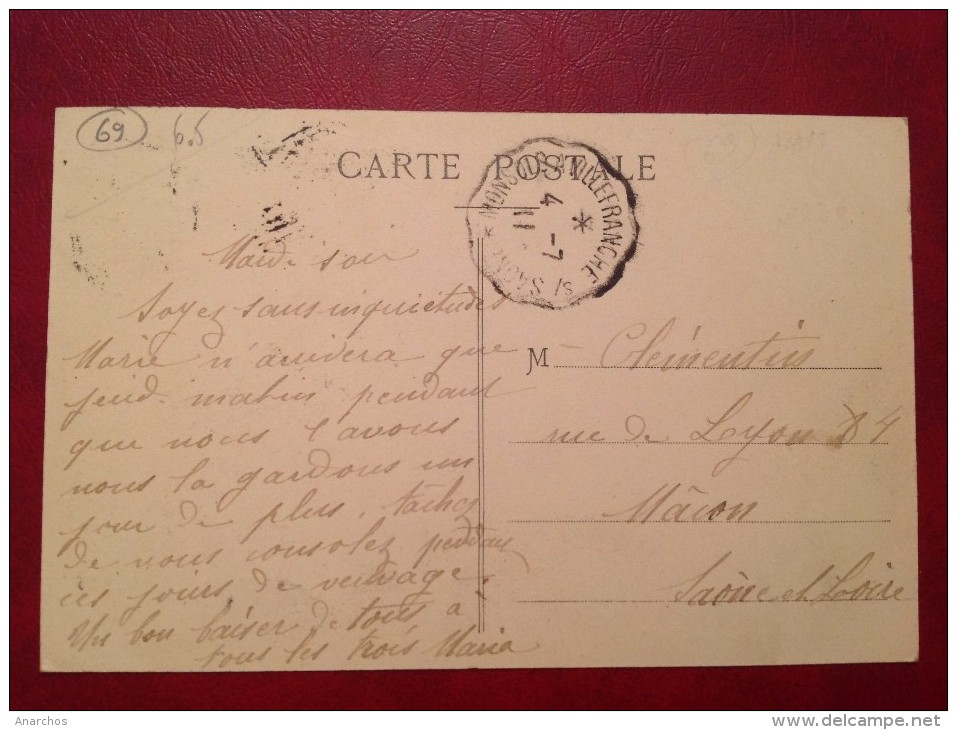 69
6.5
CARTE POSTALE
MONSOLS A VILLEFRANCHE S/ SAONE
4 - 7
11
Mardi soir
Soyez sans inquiétudes
Marie n'arrivera que
jeudi matin pendant
que nous l'avons
nous la gardons un
jour de plus, tachez
de vous consolez pendant
ces jours de veuvage.
Un bon baiser de tous à
tous les trois Maria
M Clémentin
rue de Lyon 84
Mâcon
Saône et Loire
Anarchos
www.delcampe.net